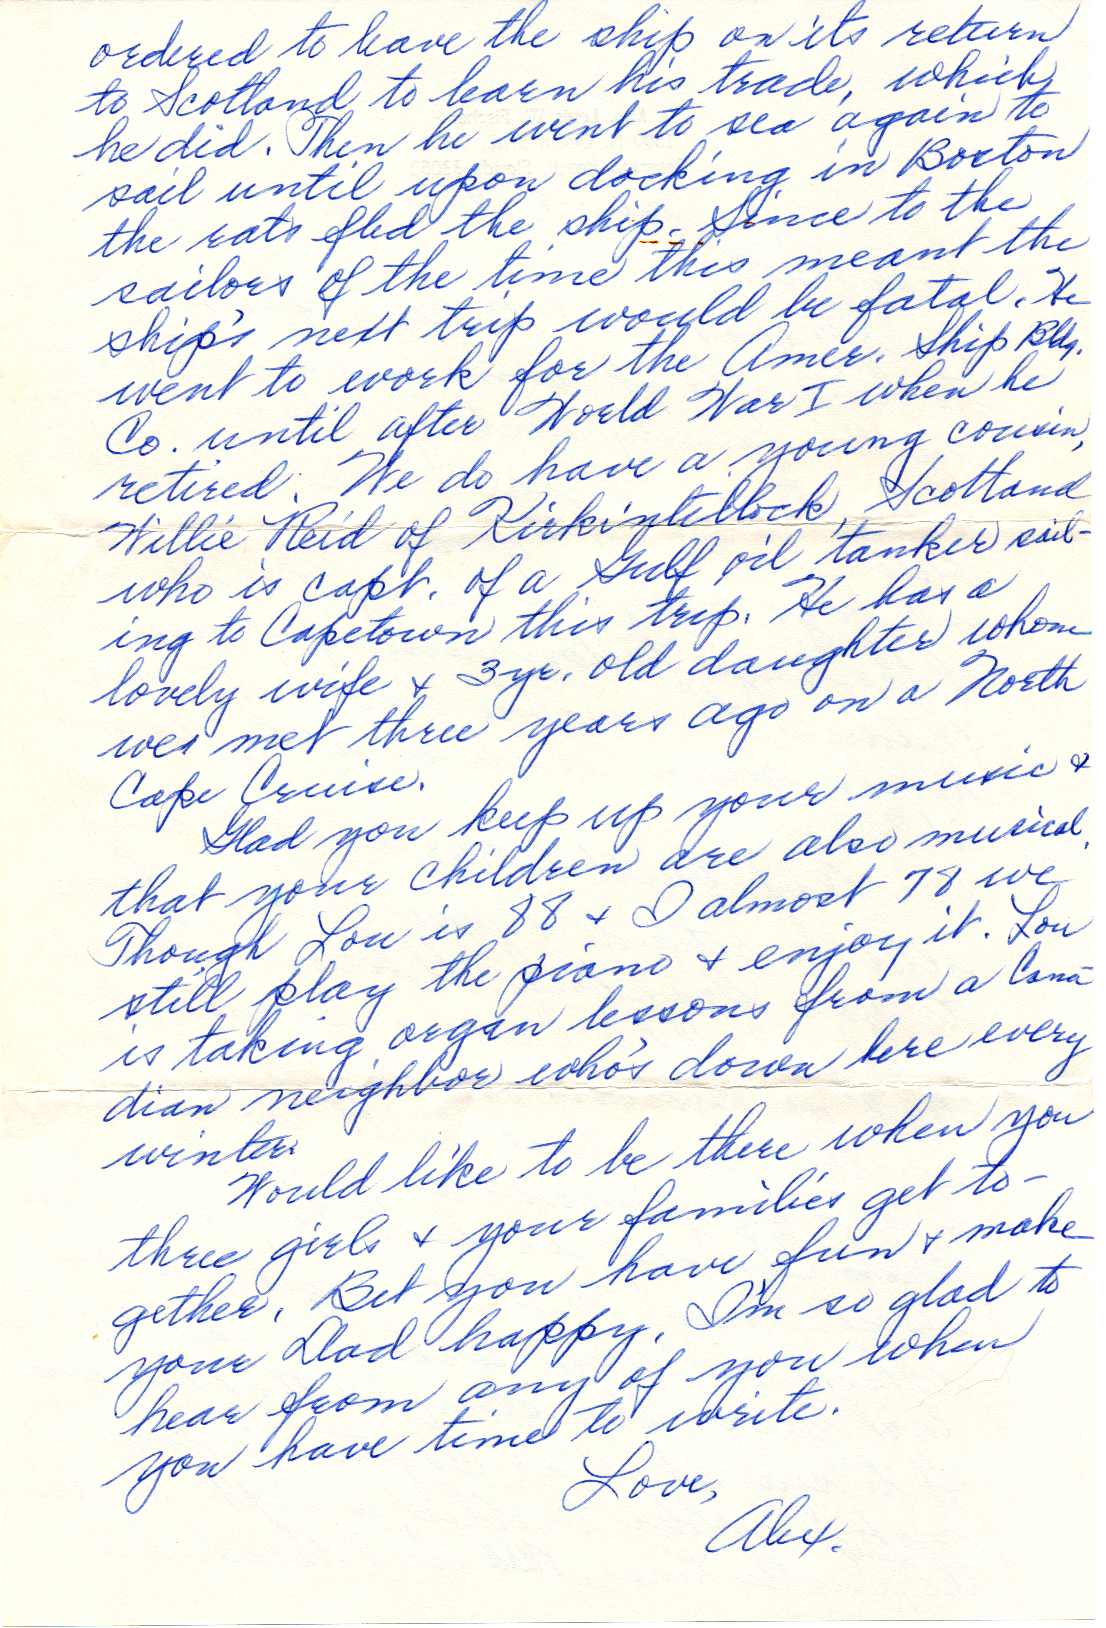 ordered to leave the ship on its return
to Scotland to learn his trade, which
he did. Then he went to sea again to
sail until upon docking in Boston
the rats fled the ship. Since to the
sailors of the time this meant the
ship's next trip would be fatal. He
went to work for the Amer. Ship Bldg.
Co. until after World War I when he
retired. We do have a young cousin,
Willie Reid of Kirkintillock, Scotland
who is capt. of a Gulf oil tanker sail-
ing to Capetown this trip. He has a
lovely wife & 3 yr. old daughter whom
we met three years ago on a North
Cape Cruise.
Glad you keep up your music &
that your children are also musical.
Though Lou is 88 & I almost 78 we
still play the piano & enjoy it. Lou
is taking organ lessons from a Cana-
dian neighbor who's down here every
winter.
Would like to be there when you
three girls & your families get to-
gether. Bet you have fun & make
your Dad happy. I'm so glad to
hear from any of you when
you have time to write.
Love,
Alex.